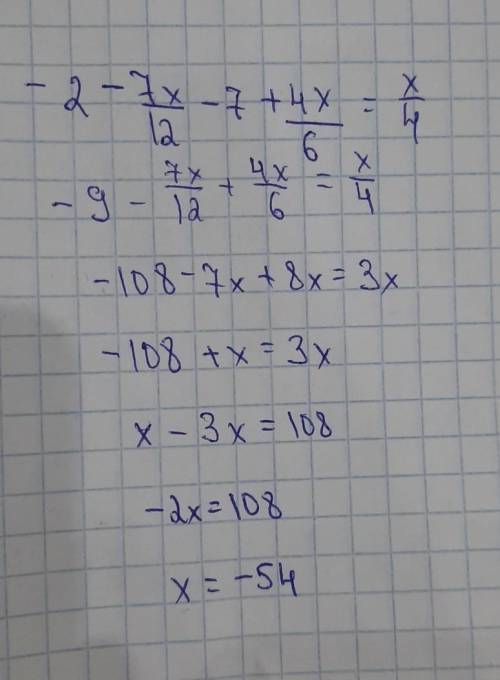 -2 - 7x/12 - 7 + 4x/6 = x/4
-9 - 7x/12 + 4x/6 = x/4
-108-7x+8x=3x
-108+x=3x
x-3x=108
-2x=108
x=-54